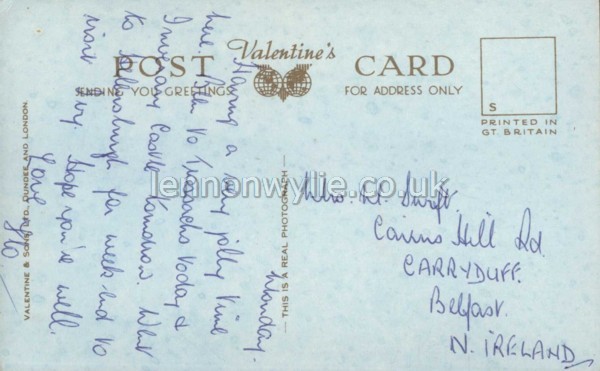 POST Valentine's CARD
SENDING YOU GREETINGS
FOR ADDRESS ONLY
S
PRINTED IN
GT. BRITAIN
VALENTINE & SONS, LTD., DUNDEE AND LONDON.
THIS IS A REAL PHOTOGRAPH
lennonwylie.co.uk
Monday.
Having a very jolly time
here. Been to Trossachs today &
Inveraray Castle tomorrow. Went
to for week-end to
visit Ivy. Hope you're well.
Love
Mrs. H. Swift
Cairns Hill Rd
CARRYDUFF.
Belfast.
N. IRELAND